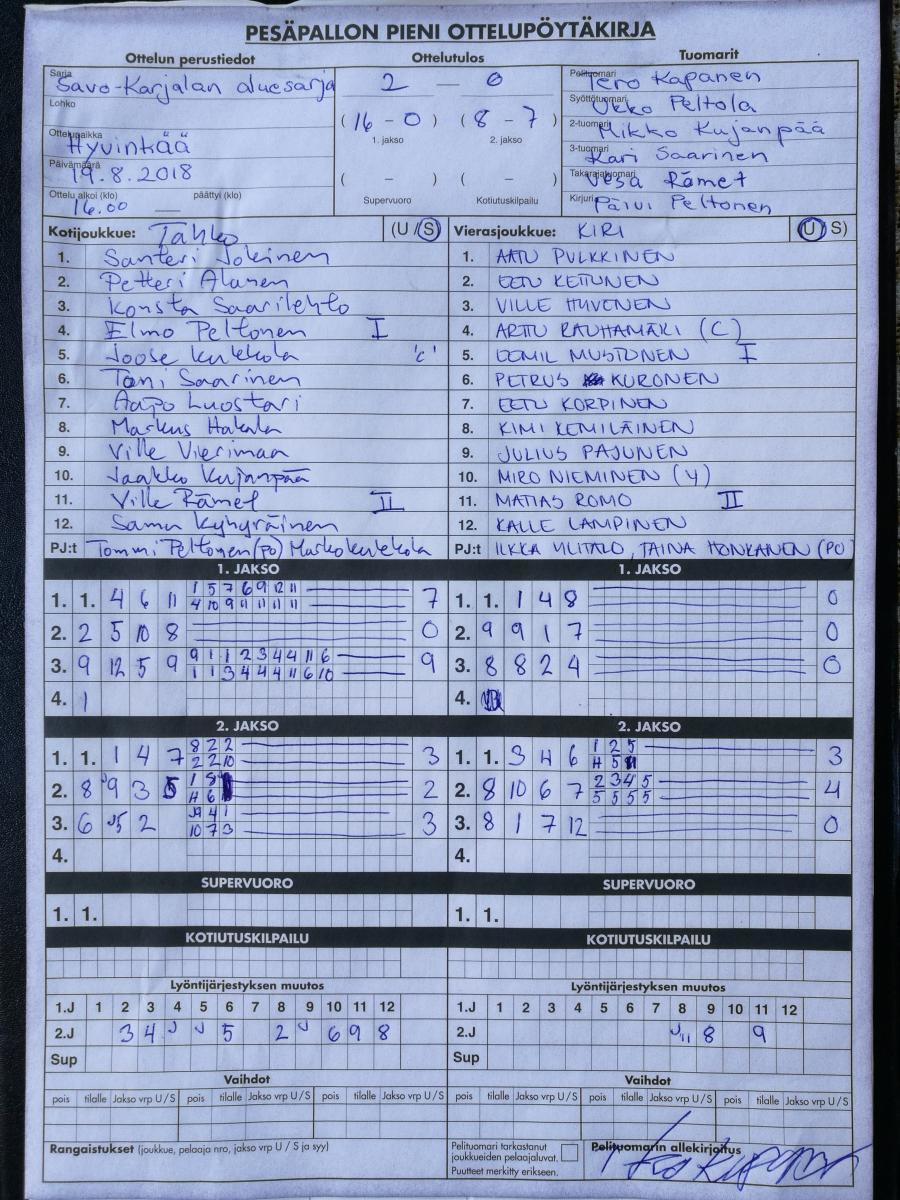 PESÄPALLON PIENI OTTELUPÖYTÄKIRJA
Ottelun perustiedot Ottelutulos Tuomarit
Sarja Savo-Karjalan aluesarja
Lohko
Ottelupaikka Hyvinkää
Päivämäärä 19.8.2018
Ottelu alkoi (klo) 16.00 päättyi (klo) —
2 — 0
(16 - 0) (8 - 7)
1. jakso 2. jakso
( - ) ( - )
Supervuoro Kotiutuskilpailu
Pelituomari Tero Kapanen
Syöttötuomari Ukko Peltola
2-tuomari Mikko Kujanpää
3-tuomari Kari Saarinen
Takarajatuomari Vesa Rämet
Kirjuri Päivi Peltonen
Kotijoukkue: Tahko (U / S)
1. Santeri Jokinen
2. Petteri Alanen
3. Konsta Saarilehto
4. Elmo Peltonen I
5. Joose Kukkola 'c'
6. Tomi Saarinen
7. Aapo Luostari
8. Markus Hakala
9. Ville Vierimaa
10. Jaakko Kujanpää
11. Ville Rämet II
12. Samu Kyhyräinen
PJ:t Tommi Peltonen (PO) Marko Kukkola
Vierasjoukkue: KIRI (U / S)
1. AATU PULKKINEN
2. EETU KETTUNEN
3. VILLE HYVÖNEN
4. ARTTU RAUHAMÄKI (C)
5. EEMIL MUSTONEN I
6. PETRUS KURONEN
7. EETU KORPINEN
8. KIMI KEMILÄINEN
9. JULIUS PAJUNEN
10. MIRO NIEMINEN (Y)
11. MATIAS ROMO II
12. KALLE LAMPINEN
PJ:t ILKKA YLITALO, TAINA HONKANEN (PO)
1. JAKSO 1. JAKSO
1. 1. 4 6 11 1 5 7 6 9 12 11 7
4 10 9 11 11 11 11
2. 2 5 10 8 0
3. 9 12 5 9 9 1 1 2 3 4 4 11 6 9
1 1 3 4 4 4 11 6 10
4. 1
1. 1. 1 4 8 0
2. 9 9 1 7 0
3. 8 8 2 4 0
4.
2. JAKSO 2. JAKSO
1. 1. 1 4 7 8 2 2 3
2 2 10
2. 8 J9 3 5 1 8 2
4 6
3. 6 J5 2 J9 4 1 3
10 7 3
4.
1. 1. 3 4 6 1 2 5 3
4 5 11
2. 8 10 6 7 2 3 4 5 4
5 5 5 5
3. 8 1 7 12 0
4.
SUPERVUORO SUPERVUORO
1. 1. 1. 1.
KOTIUTUSKILPAILU KOTIUTUSKILPAILU
Lyöntijärjestyksen muutos Lyöntijärjestyksen muutos
1.J 1 2 3 4 5 6 7 8 9 10 11 12 1.J 1 2 3 4 5 6 7 8 9 10 11 12
2.J 3 4 J J 5 2 J 6 9 8 2.J J 11 8 9
Sup Sup
Vaihdot Vaihdot
pois tilalle Jakso vrp U / S pois tilalle Jakso vrp U / S pois tilalle Jakso vrp U / S pois tilalle Jakso vrp U / S pois tilalle Jakso vrp U / S pois tilalle Jakso vrp U / S
Rangaistukset (joukkue, pelaaja nro, jakso vrp U / S ja syy)
Pelituomari tarkastanut
joukkueiden pelaajaluvat.
Puutteet merkitty erikseen.
Pelituomarin allekirjoitus